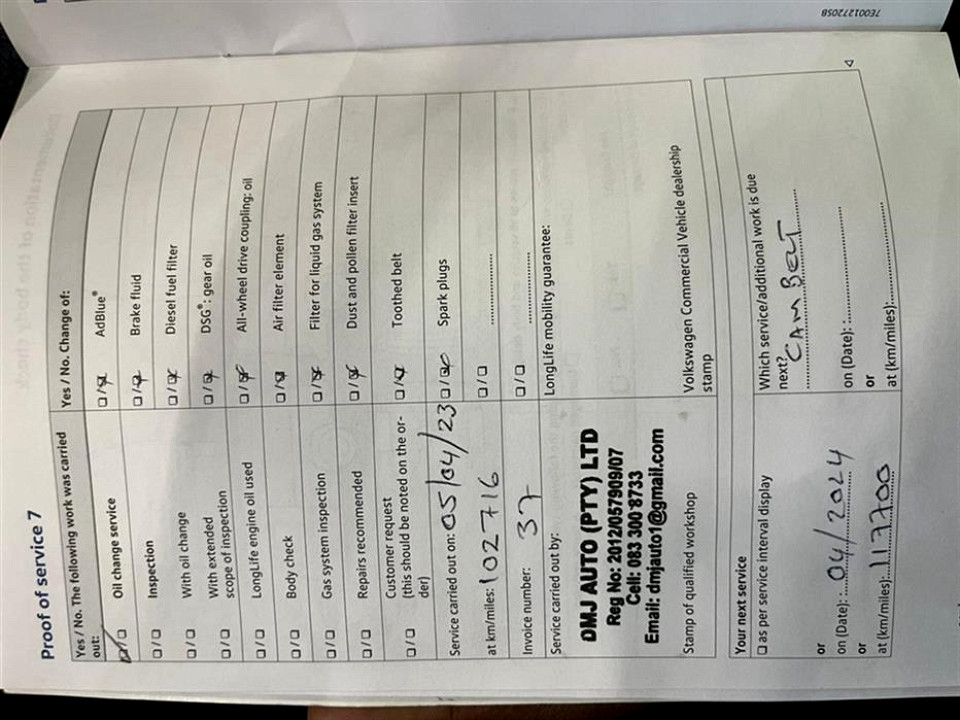 Proof of service 7
Yes / No. The following work was carried
out:
☑/☐ Oil change service
☐/☐ Inspection
☐/☐ With oil change
☐/☐ With extended
scope of inspection
☐/☐ LongLife engine oil used
☐/☐ Body check
☐/☐ Gas system inspection
☐/☐ Repairs recommended
☐/☐ Customer request
(this should be noted on the or-
der)
Service carried out on: 05/04/23
at km/miles: 102716
Invoice number: 37
Service carried out by:
DMJ AUTO (PTY) LTD
Reg No: 2012/057909/07
Cell: 083 300 8733
Email: dmjauto1@gmail.com
Stamp of qualified workshop
Yes / No. Change of:
☐/☑ AdBlue®
☐/☑ Brake fluid
☐/☑ Diesel fuel filter
☐/☑ DSG®: gear oil
☐/☑ All-wheel drive coupling: oil
☐/☑ Air filter element
☐/☑ Filter for liquid gas system
☐/☑ Dust and pollen filter insert
☐/☑ Toothed belt
☐/☑ Spark plugs
☐/☐ ....................
☐/☐ ....................
LongLife mobility guarantee:
Volkswagen Commercial Vehicle dealership
stamp
Your next service
☐ as per service interval display
or
on (Date): 04/2024
or
at (km/miles): 117700
Which service/additional work is due
next? CAM BELT
on (Date): ....................
or
at (km/miles): ....................
7E0012720SB